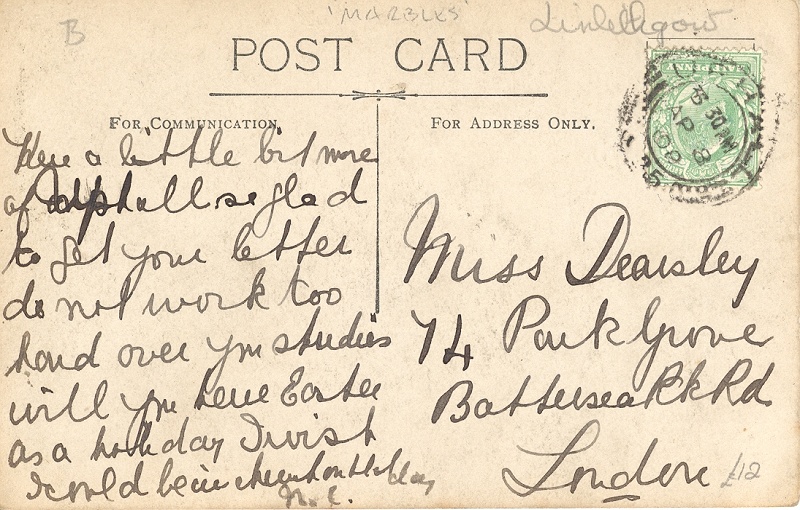 B
'MARBLES'
Linlithgow
POST CARD
FOR COMMUNICATION.
FOR ADDRESS ONLY.
HALF PENNY
30 AM
AP 8
08
Here a little bit more
of so glad
to get your letter
do not work too
hard over your studies
will you have Easter
as a holiday I wish
I could be in day
Miss Dearsley
74 Park Grove
Battersea Pk Rd
London
£12